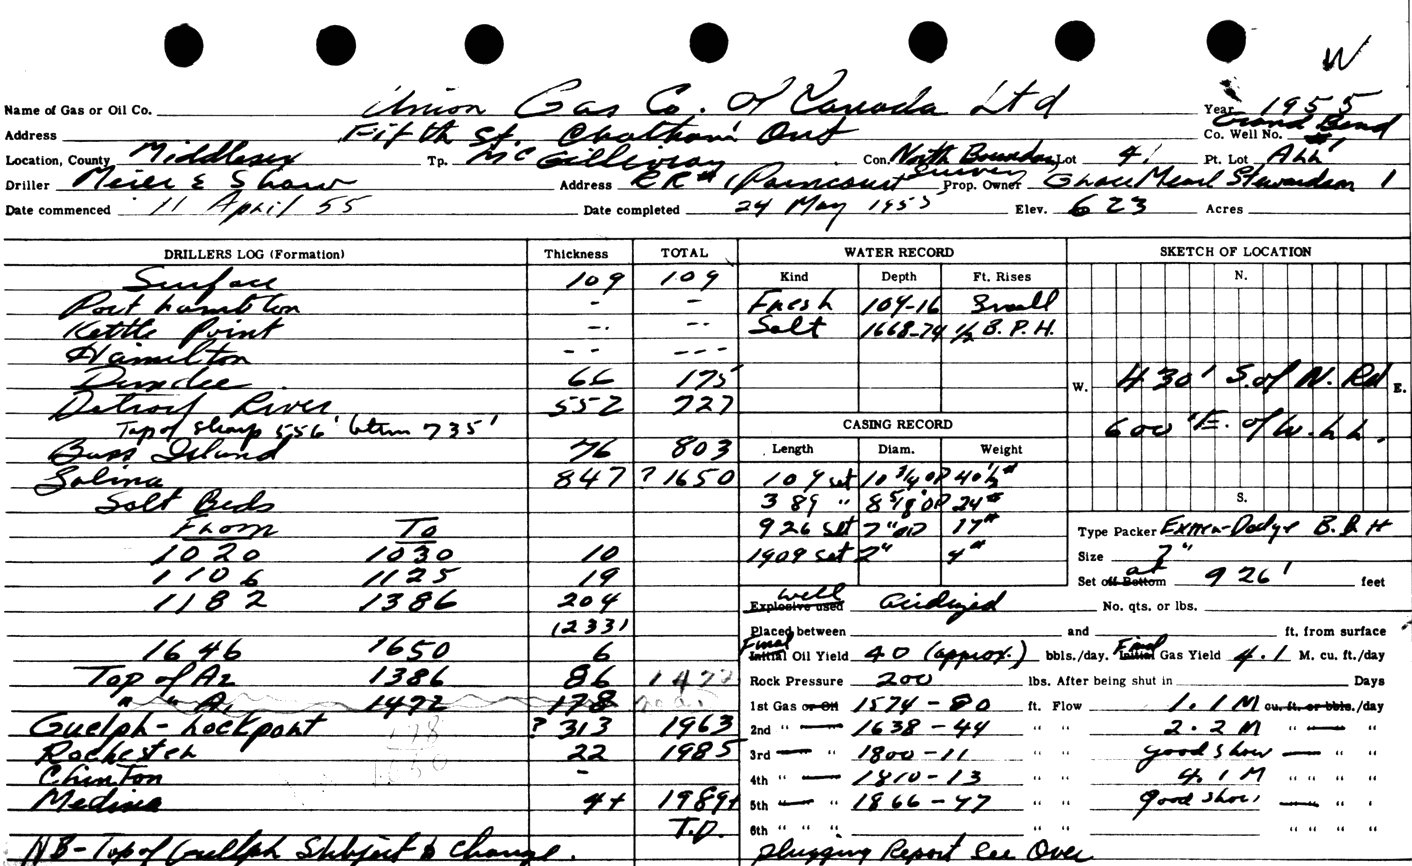 W
Name of Gas or Oil Co. Union Gas Co. of Canada Ltd Year 1955
Address Fifth St. Chatham Ont Co. Well No. Grand Bend #1
Location, County Middlesex Tp. McGillivray Con. North Boundary Lot 41 Pt. Lot All
Survey
Driller Meier & Shaw Address RR #1 Paincourt Prop. Owner Grace Mearl Stewardson 1
Date commenced 11 April 55 Date completed 24 May 1955 Elev. 623 Acres
DRILLERS LOG (Formation) Thickness TOTAL WATER RECORD SKETCH OF LOCATION
Surface 109 109 Kind Depth Ft. Rises N.
Port Lambton - - Fresh 104-16 Small
Kettle Point -. -. Salt 1668-74 1/2 B.P.H.
Hamilton -- ---
Dundee 66 175 W. 430' S. of N. Rd E.
Detroit River 552 727
Top of sharp 556' btm 735' CASING RECORD 600' E. of W.L.L.
Bass Island 76 803 Length Diam. Weight
Salina 847 ? 1650 109 set 10 3/4 OD 40 1/2 #
Salt Beds 389 " 8 5/8" OD 24# S.
From To 926 set 7" OD 17# Type Packer Dodge B.&H
1020 1030 10 1909 set 2" 4# Size 7"
1106 1125 19 Set off Bottom at 926' feet
1182 1386 204 Explosive used well acidized No. qts. or lbs.
(233) Placed between and ft. from surface
1646 1650 6 Initial Final Oil Yield 40 (approx.) bbls./day. Initial Final Gas Yield 4.1 M. cu. ft./day
Top of A2 1386 86 1472 Rock Pressure 200 lbs. After being shut in Days
" " A1 1472 178 1st Gas or Oil 1574-80 ft. Flow 1.1 M cu. ft. or bbls./day
Guelph-Lockport ? 313 1963 2nd " 1638-44 " " 2.2 M " "
178
Rochester 22 1985 3rd " 1800-11 " " good show " "
1650
Clinton - 4th " 1810-13 " " 4.1 M " " " "
Medina 4+ 1989+ 5th " 1866-77 " " good show " "
T.D. 6th " " " " " " " " "
NB-Top of Guelph Subject to Change. Plugging Report See Over